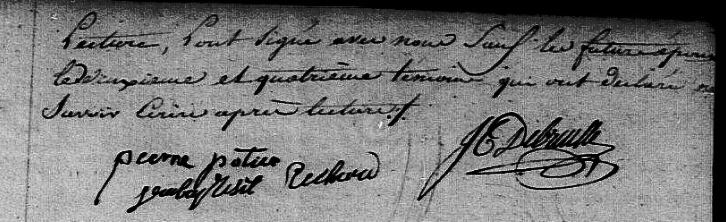 Lecture, l'ont signé avec nous Sauf les futurs époux
le deuxieme et quatrième témoins qui ont déclaré ne
Savoir écrire après lecture ./.
pierre JC Debruille